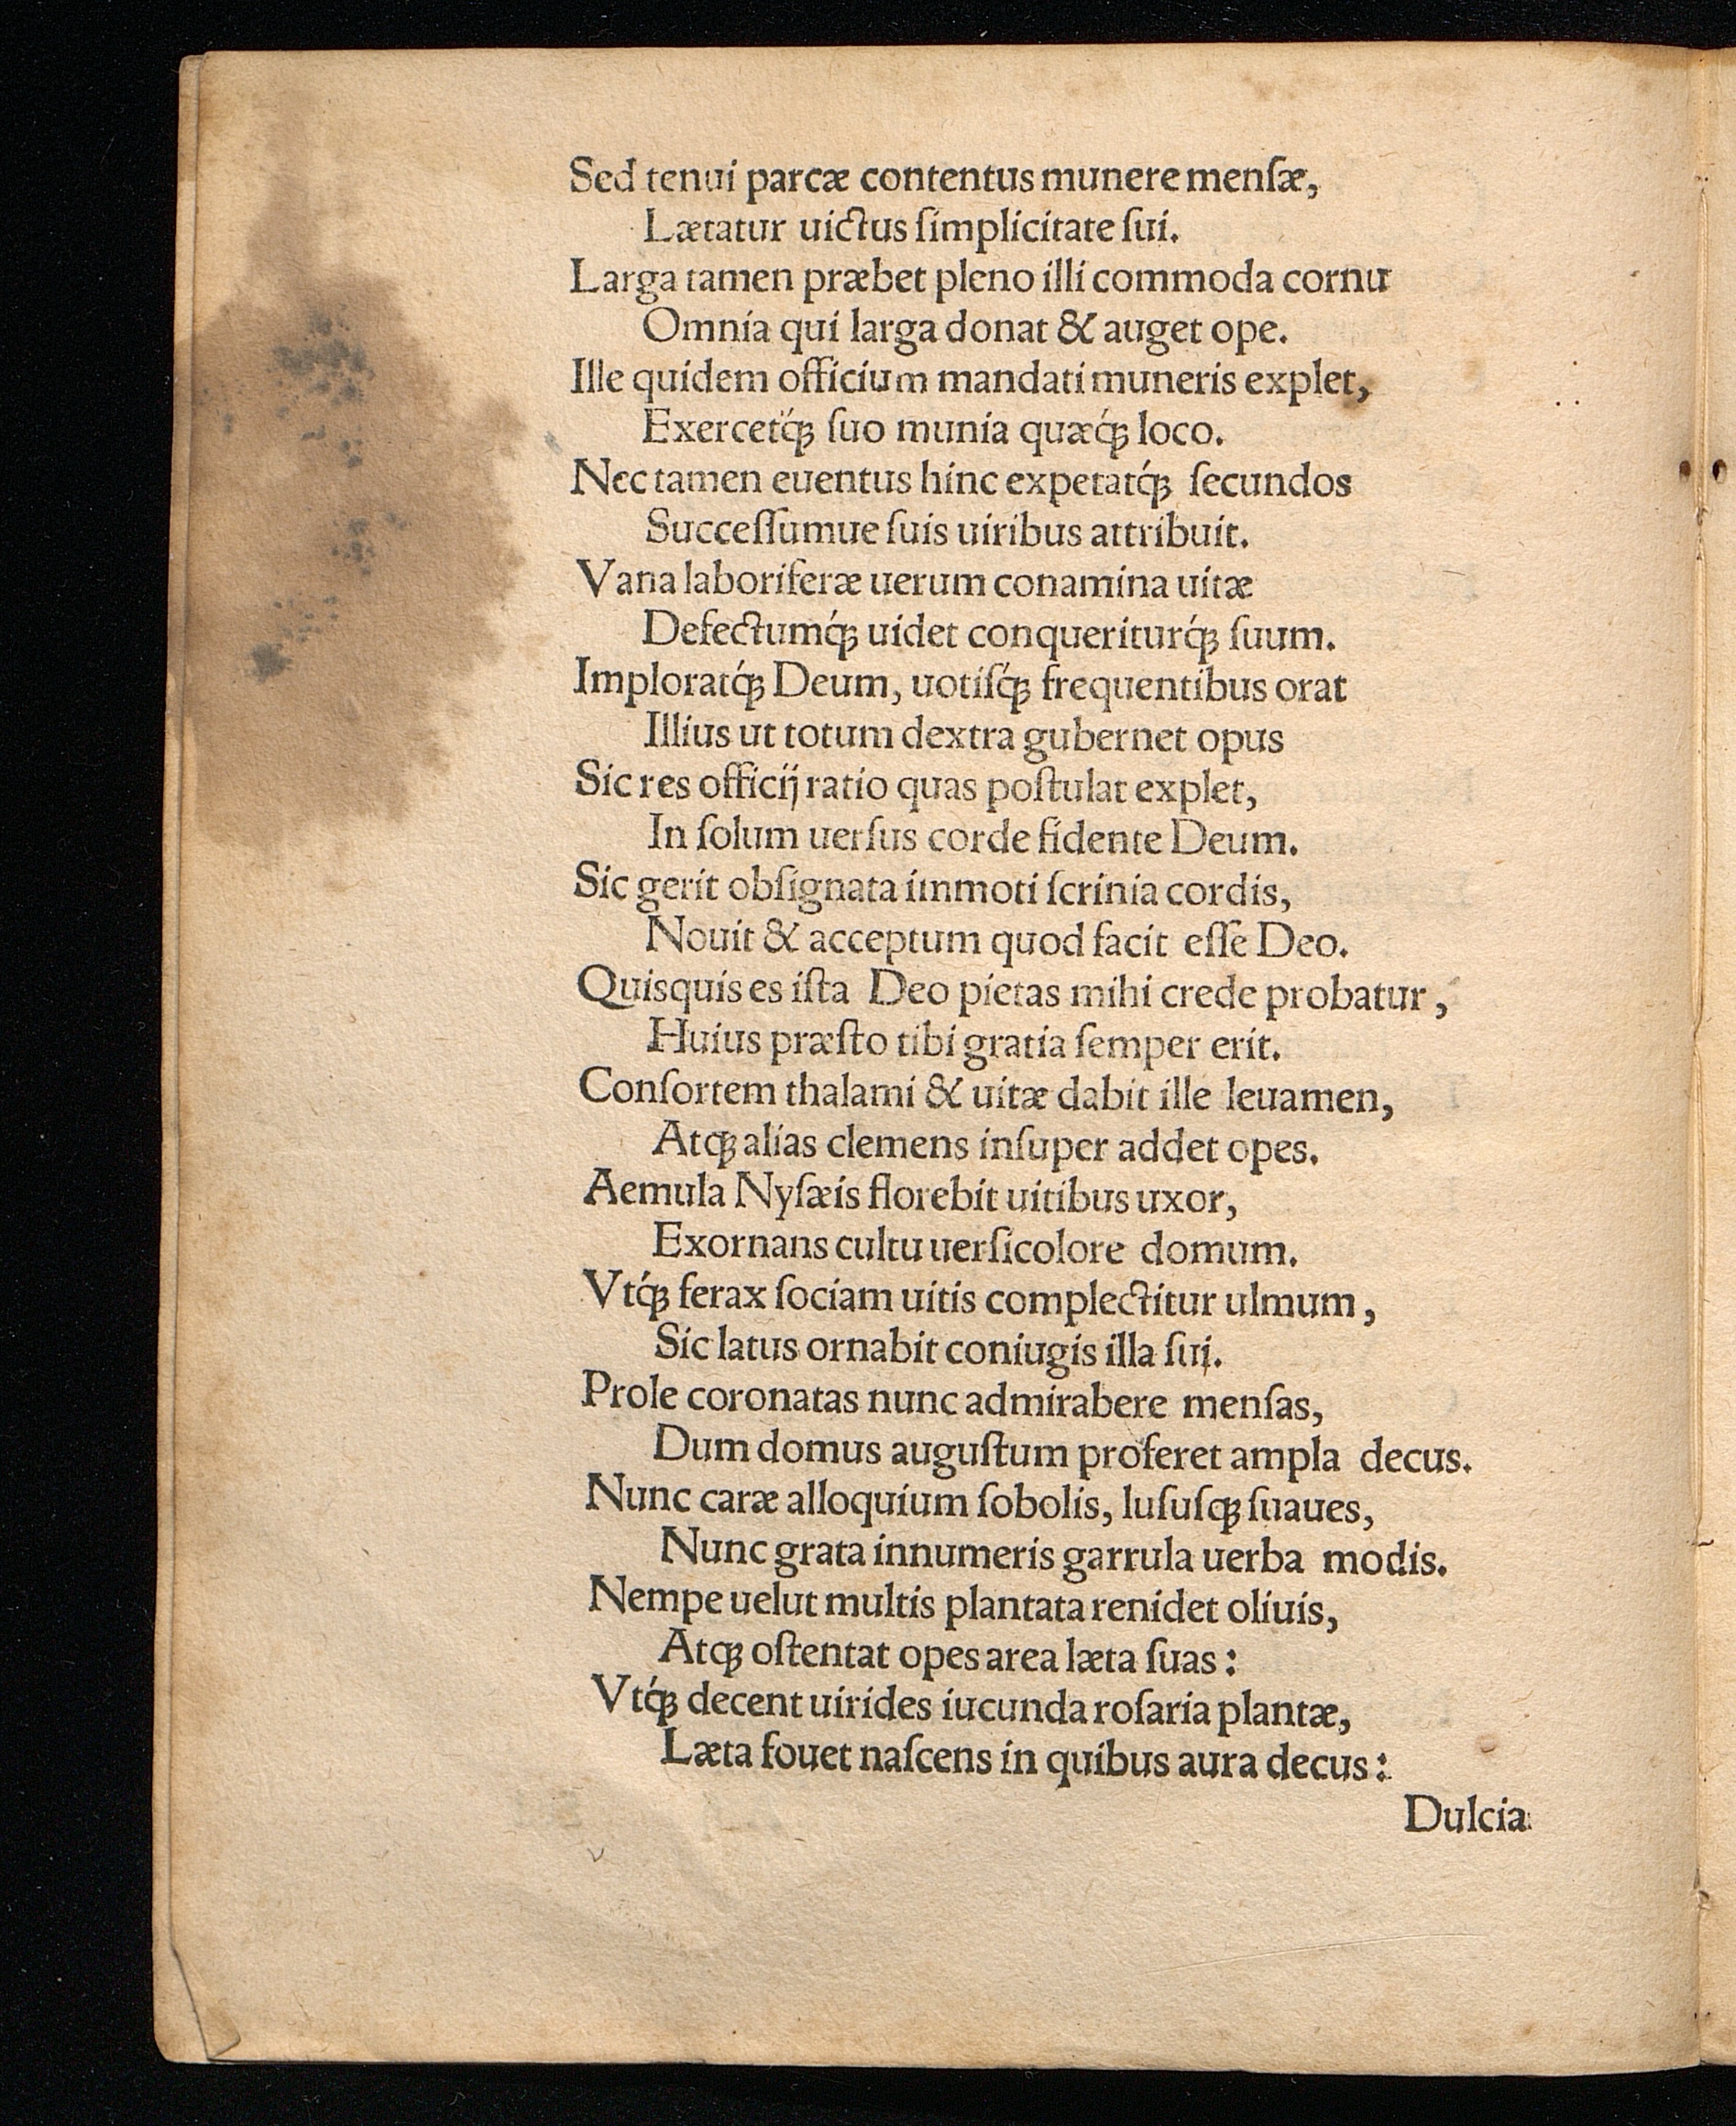 Sed tenui parcæ contentus munere menſæ,
Lætatur uictus ſimplicitate ſui.
Larga tamen præbet pleno illi commoda cornu
Omnia qui larga donat & auget ope.
Ille quidem officium mandati muneris explet,
Exercetq́ꝫ ſuo munia quæq́ꝫ loco.
Nec tamen euentus hinc expetatq́ꝫ ſecundos
Succeſſumue ſuis uiribus attribuit.
Vana laboriferæ uerum conamina uitæ
Defectumq́ꝫ uidet conqueriturq́ꝫ ſuum.
Imploratq́ꝫ Deum, uotiſq́ꝫ frequentibus orat
Illius ut totum dextra gubernet opus
Sic res officij ratio quas poſtulat explet,
In ſolum uerſus corde fidente Deum.
Sic gerit obſignata immoti ſcrinia cordis,
Nouit & acceptum quod facit eſſe Deo.
Quisquis es iſta Deo pietas mihi crede probatur,
Huius præſto tibi gratia ſemper erit.
Conſortem thalami & uitæ dabit ille leuamen,
Atqꝫ alias clemens inſuper addet opes.
Aemula Nyſæis florebit uitibus uxor,
Exornans cultu uerſicolore domum.
Vtq́ꝫ ferax ſociam uitis complectitur ulmum,
Sic latus ornabit coniugis illa ſui.
Prole coronatas nunc admirabere menſas,
Dum domus auguſtum proferet ampla decus.
Nunc caræ alloquium ſobolis, luſuſqꝫ ſuaues,
Nunc grata innumeris garrula uerba modis.
Nempe uelut multis plantata renidet oliuis,
Atqꝫ oſtentat opes area læta ſuas:
Vtq́ꝫ decent uirides iucunda roſaria plantæ,
Læta fouet naſcens in quibus aura decus:
Dulcia